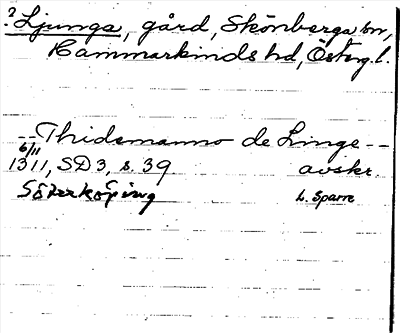 ? Ljunga, gård, Skönberga sn,
Hammarkinds hd, Österg. l.
-- Thidemanno de Linge --
6/11
1311, SD 3, s. 39 avskr.
Söderköping L. Sparre